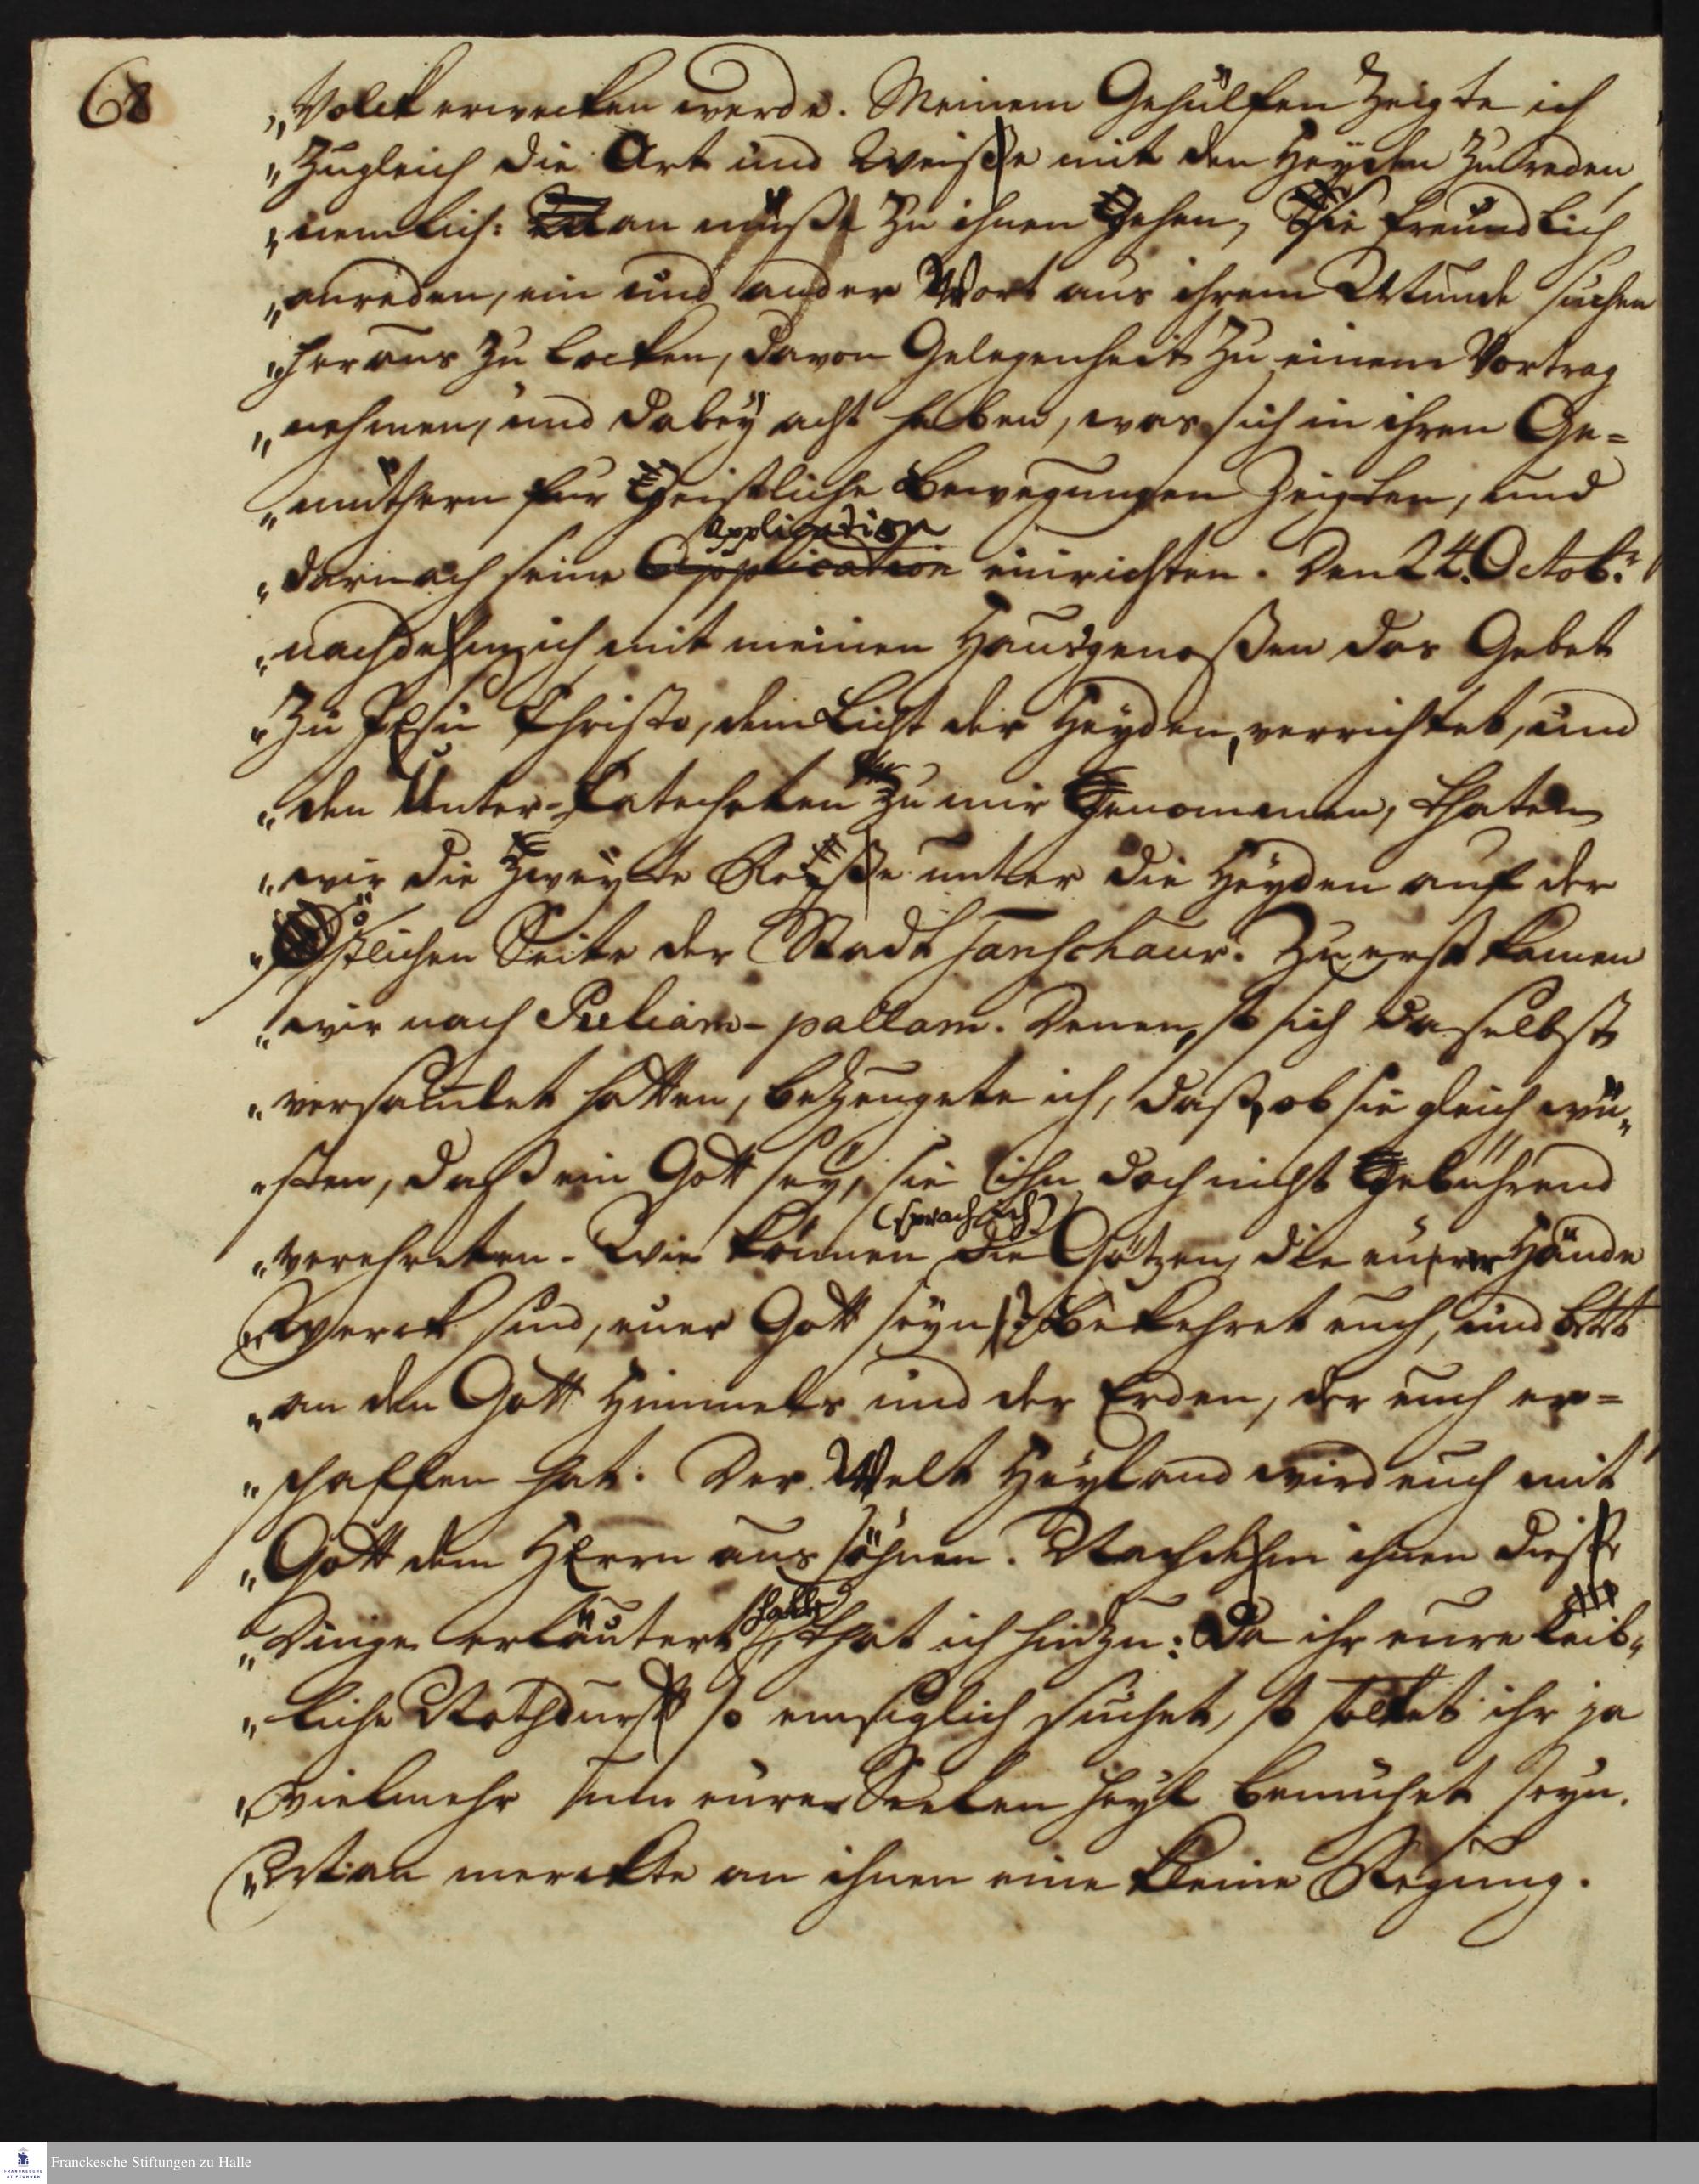 68
„Volck erwecken werde. Meinem Gehülfen zeigte ich
„zugleich die Art und Weise mit den Heyden zu reden,
„nemlich: man müste zu ihnen gehen, sie freundlich
„anreden, ein und ander Wort aus ihrem Munde suchen
„heraus zu locken, davon Gelegenheit zu einem Vortrag
„nehmen, und dabey acht haben, was sich in ihren Ge=
„müthern für geistliche Bewegungen zeigten, und
application
„darnach seine Application einrichten. Den 24. Octobr.
„nachdem ich mit meinen Hausgenoßen das Gebet
„zu JEsu Christo, dem Licht der Heyden, verrichtet, und
„den Unter-Catecheten zu mir genommen, thaten
„wir die zweyte Reise unter die Heyden auf der
„östlichen Seite der Stadt Tanschaur. Zu erst kamen
„wir nach Puliam-pallam. Denen, so sich daselbst
„versamlet hatten, bezeugete ich, daß, ob sie gleich wü„
„sten, daß ein Gott sey, sie ihn doch nicht gebührend
(sprach ich)
„verehreten. Wie können die Götzen, die eurer Hände
„Werck sind, euer Gott seyn? Bekehret euch, und betet
„an den Gott Himmels und der Erden, der euch er=
„schaffen hat. Der Welt Heyland wird euch mit
„Gott dem HErrn aussöhnen. Nachdem ihnen diese
hatte
„Dinge erläutert, that ich hinzu: Da ihr eure leib„
„liche Nothdurft so emsiglich suchet, so soltet ihr ja
„vielmehr um eurer Seelen Heyl bemühet seyn.
„Man merckte an ihnen eine kleine Regung.
Franckesche Stiftungen zu Halle